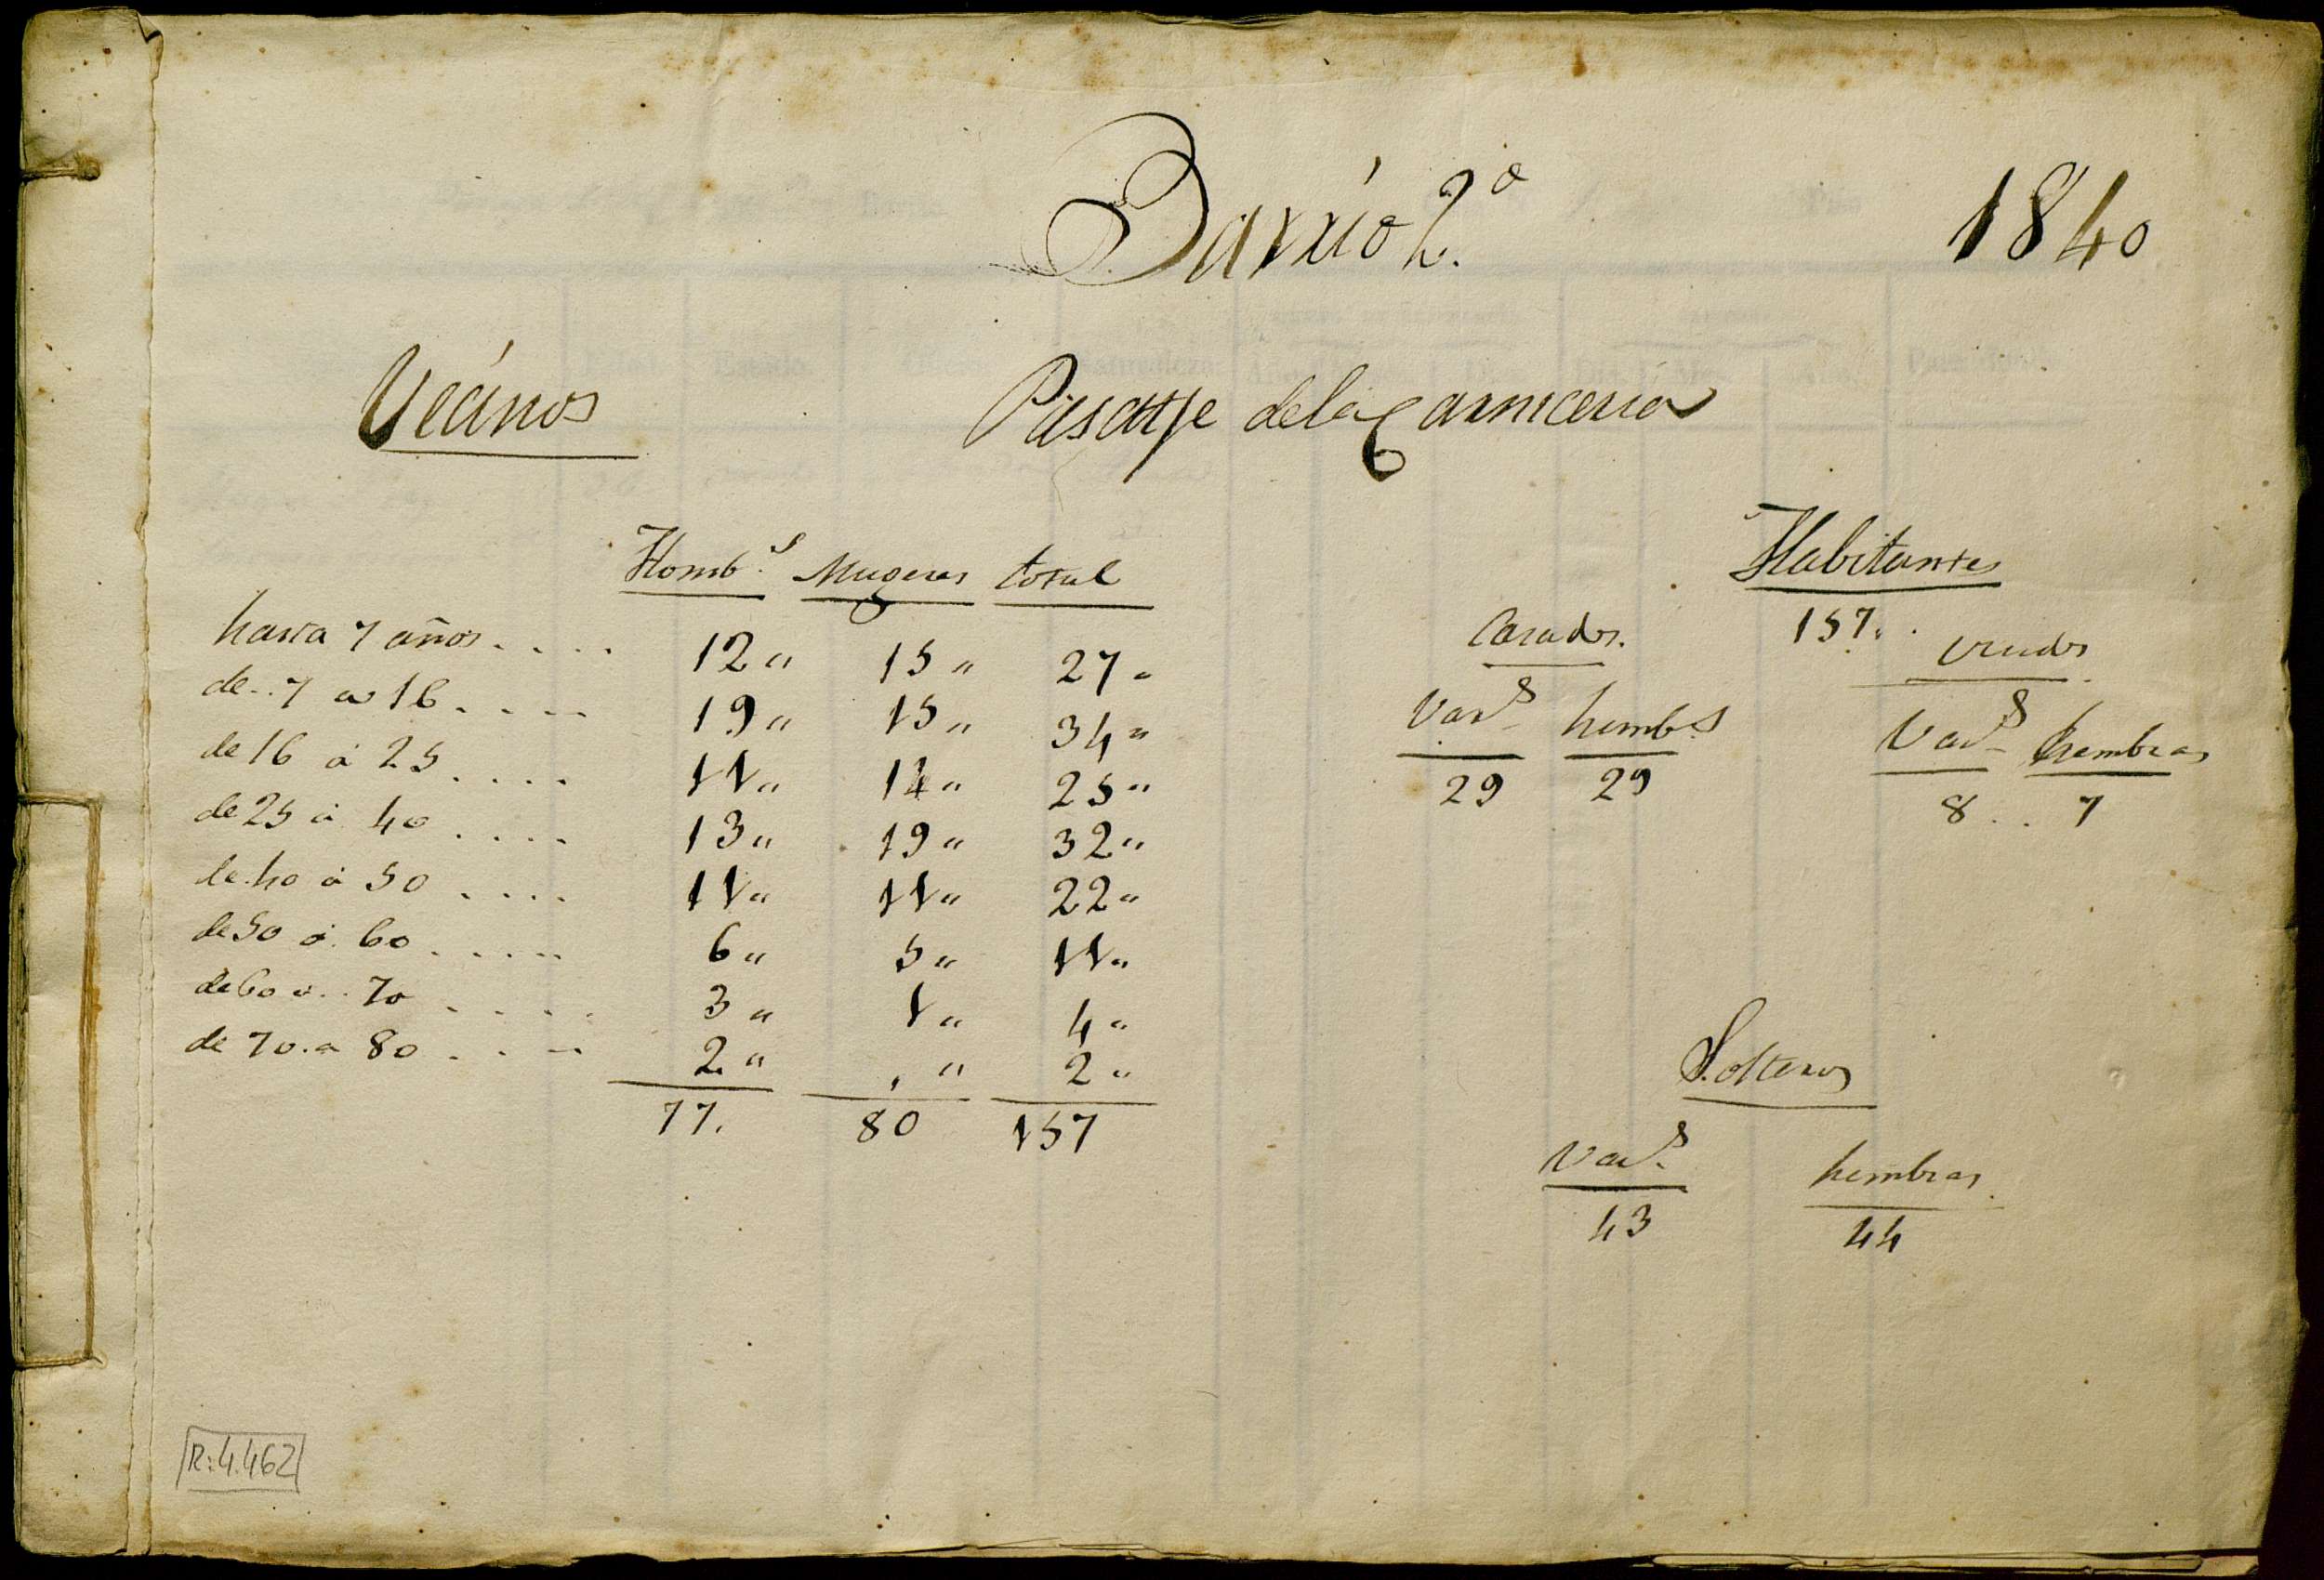 Barrio 2.º 1840
Vecinos Pasatje de la Carniceria
Homb.s Mugeres total
hasta 7 años.... 12 " 15 " 27 "
de.. 7 a 16.... 19 " 15 " 34 "
de 16 á 25.... 11 " 14 " 25 "
de 25 á 40.... 13 " 19 " 32 "
de 40 á 50.... 11 " 11 " 22 "
de 50 á 60.... 6 " 5 " 11 "
de 60 a.. 70.... 3 " 1 " 4 "
de 70. a 80.... 2 " " 2 "
77. 80 157
Habitantes
157.
Casados. viudos
Var.s hemb.s Var.s hembras
29 29 8.. 7
Solteros
Var.s hembras
43 44
R:4.462